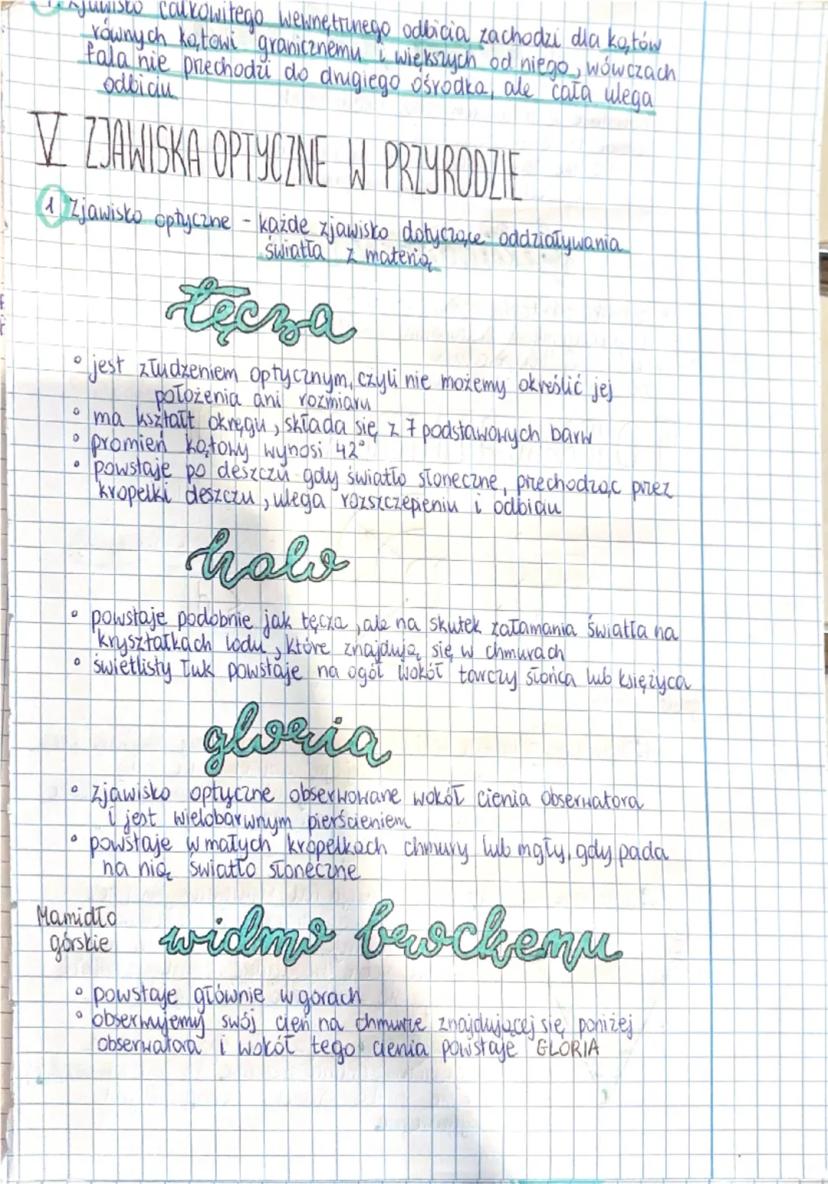 Zjawisko całkowitego wewnętrznego odbicia zachodzi dla kątów
równych kątowi granicznemu i większych od niego, wówczas
fala nie przechodzi do drugiego ośrodka, ale cała ulega
odbiciu
V ZJAWISKA OPTYCZNE W PRZYRODZIE
1 Zjawisko optyczne - każde zjawisko dotyczące oddziaływania
światła z materią
tęcza
• jest złudzeniem optycznym, czyli nie możemy określić jej
położenia ani rozmiaru
• ma kształt okręgu, składa się z 7 podstawowych barw
• promień kątowy wynosi 42°
• powstaje po deszczu gdy światło słoneczne, przechodząc przez
kropelki deszczu, ulega rozszczepieniu i odbiciu
halo
• powstaje podobnie jak tęcza, ale na skutek załamania światła na
kryształkach lodu, które znajdują się w chmurach
• świetlisty łuk powstaje na ogół wokół tarczy słońca lub księżyca
gloria
• zjawisko optyczne obserwowane wokół cienia obserwatora
i jest wielobarwnym pierścieniem
• powstaje w małych kropelkach chmury lub mgły, gdy pada
na nią światło słoneczne
Mamidło
górskie
widmo brockenu
• powstaje głównie w górach
• obserwujemy swój cień na chmurze znajdującej się poniżej
obserwatora i wokół tego cienia powstaje GLORIA